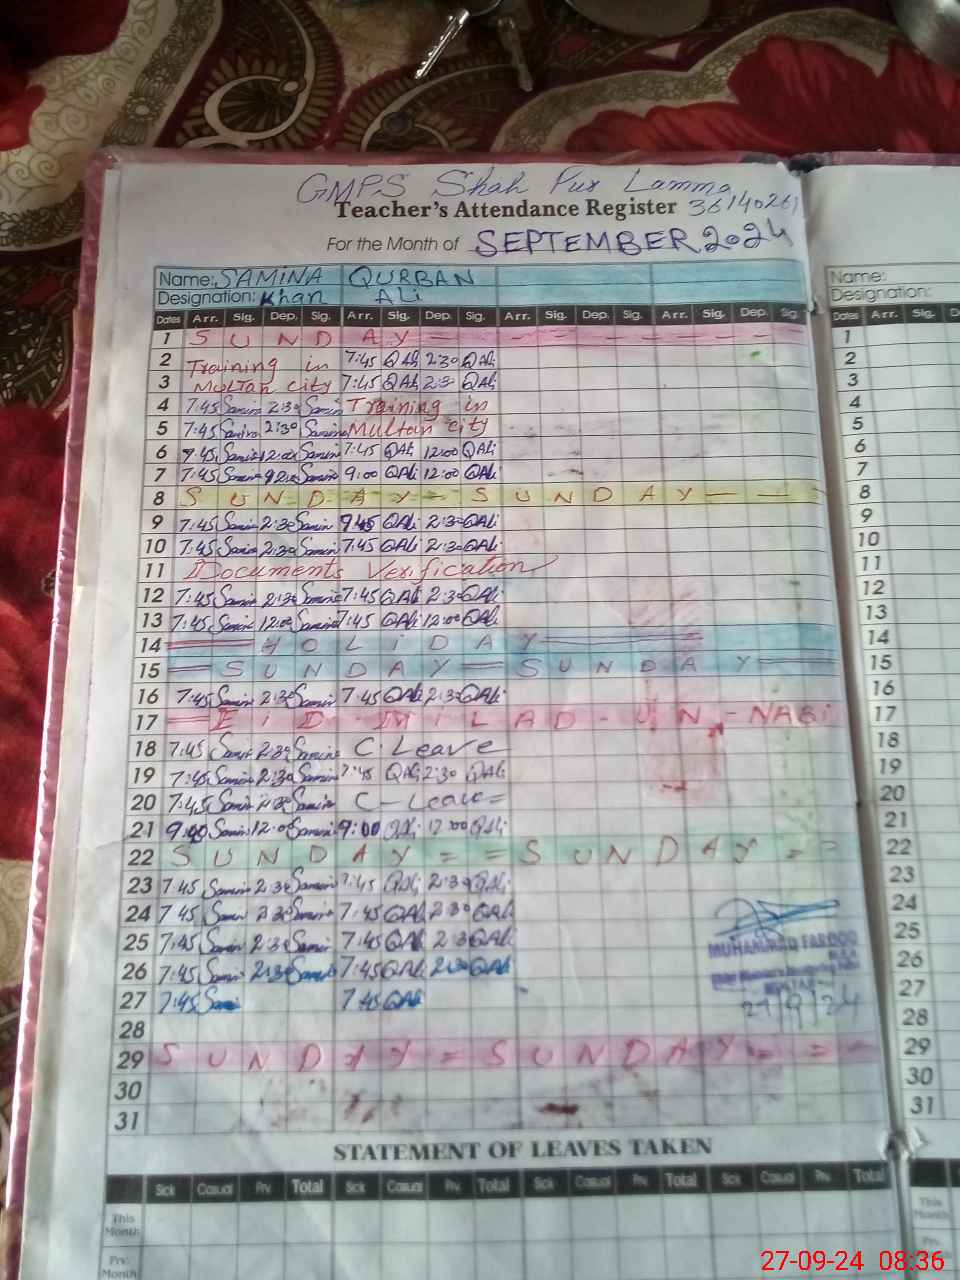 GMPS Shah Pur Lamma
Teacher's Attendance Register 36140261
For the Month of SEPTEMBER 2024
Name: SAMINA QURBAN
Designation: Khan ALi
Dates Arr. Sig. Dep. Sig. Arr. Sig. Dep. Sig. Arr. Sig. Dep. Sig. Arr. Sig. Dep. Sig.
1 SUNDAY
2 Training in 7:45 QAli 2:30 QAli
3 Multan city 7:45 QAli 2:3 QAli
4 7:45 Samina 2:30 Samina Training in
5 7:45 Samina 2:30 Samina Multan city
6 7:45 Samina 12:00 Samina 7:45 QAli 12:00 QAli
7 7:45 Samina Samina 9:00 QAli 12:00 QAli
8 SUNDAY - SUNDAY - -
9 7:45 Samina 2:30 Samina QAli 2:30 QAli
10 7:45 Samina 2:30 Samina 7:45 QAli 2:30 QAli
11 Documents Verification
12 7:45 Samina 2:30 Samina 7:45 QAli 2:30 QAli
13 7:45 Samina 12:00 Samina 7:45 QAli 12:00 QAli
14 HOLiDAY
15 SUNDAY SUNDAY
16 7:45 Samina 2:30 Samina 7:45 QAli 2:30 QAli
17 EiD - MiLAD - UN - NABi
18 7:45 Samina 2:30 Samina C. Leave
19 7:45 Samina 2:30 Samina 7:45 QAli 2:30 QAli
20 7:45 Samina 2:30 Samina C - Leave
21 9:00 Samina 12:00 Samina 9:00 QAli 12:00 QAli
22 SUNDAY = = SUNDAY = =
23 7:45 Samina 2:30 Samina 7:45 QAli 2:30 QAli
24 7:45 Samina 2:30 Samina 7:45 QAli 2:30 QAli
25 7:45 Samina 2:30 Samina 7:45 QAli 2:30 QAli
26 7:45 Samina 2:30 Samina 7:45 QAli 2:30 QAli
27 7:45 Samina 7:45 QAli
28
29 SUNDAY = SUNDAY = =
30
31
MUHAMMAD FAROOQ
27/9/24
STATEMENT OF LEAVES TAKEN
Sick Casual Prv. Total Sick Casual Prv. Total Sick Casual Prv. Total Sick Casual Prv. Total
This Month
Prv. Month
Name:
Designation:
Dates Arr. Sig.
1
2
3
4
5
6
7
8
9
10
11
12
13
14
15
16
17
18
19
20
21
22
23
24
25
26
27
28
29
30
31
Sick
This Month
Prv. Month
27-09-24 08:36